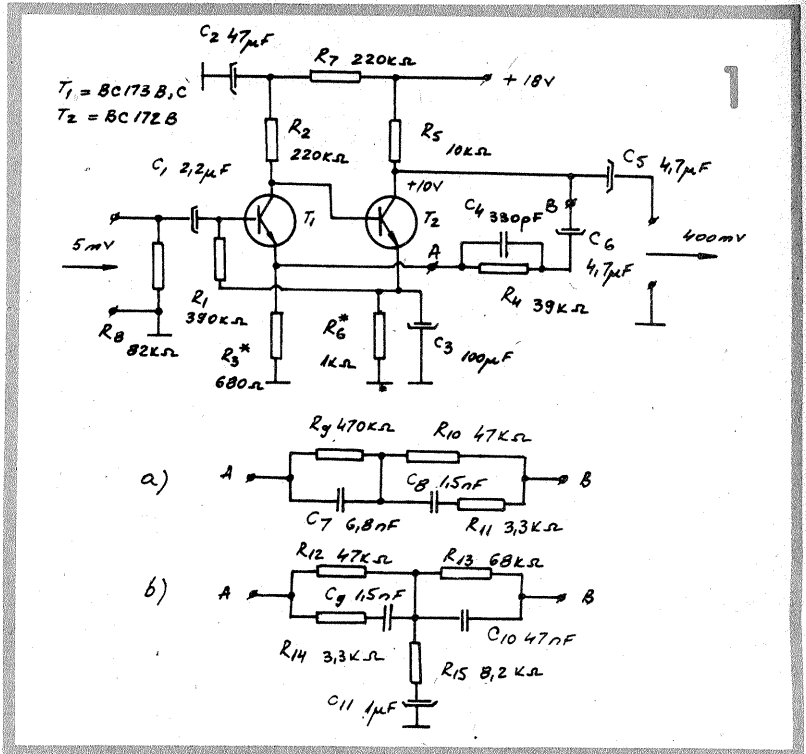 1
C2 47µF
R7 220kΩ
+18V
T1 = BC173B,C
T2 = BC172B
R2
220kΩ
R5
10kΩ
C1 2,2µF
C5 4,7µF
+10V
T1
T2
C4 390pF
B
C6
4,7µF
400mV
5mV
A
R4 39kΩ
R1
390kΩ
R8
82kΩ
R3*
680Ω
R6*
1kΩ
*
C3 100µF
a)
A
R9 470kΩ
R10 47kΩ
B
C7 6,8nF
C8 1,5nF
R11 3,3kΩ
b)
A
R12 47kΩ
R13 68kΩ
B
C9 1,5nF
C10 47nF
R14 3,3kΩ
R15 8,2kΩ
C11 1µF